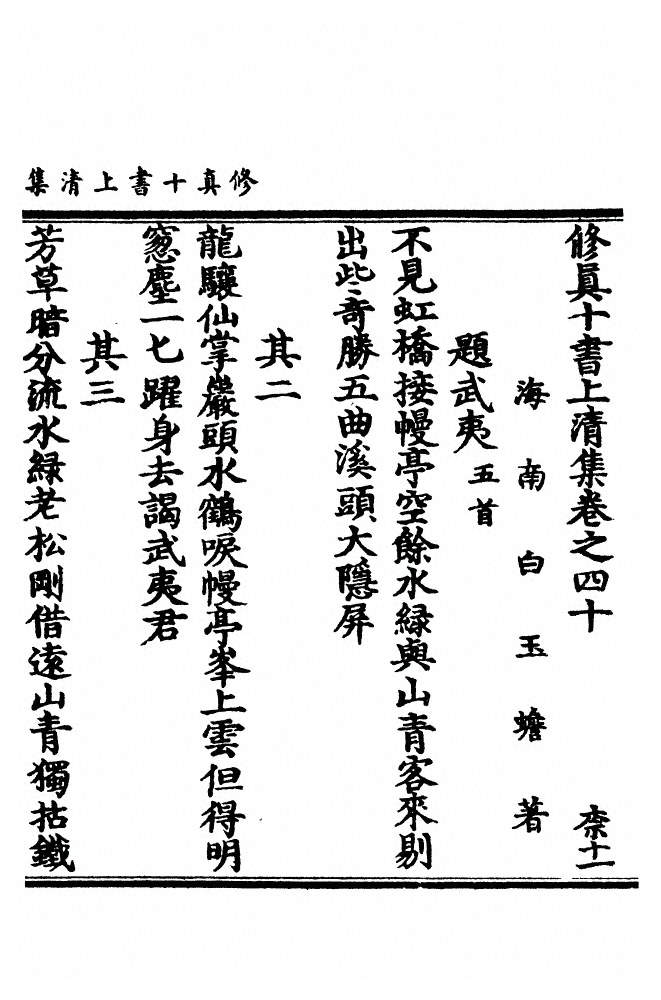 修真十書上清集
修真十書上清集卷之四十 柰十一
海南白玉蟾著
題武夷五首
不見虹橋接幔亭空餘水緑與山青客來剔
出些奇勝五曲溪頭大隱屏
其二
龍驤仙掌巖頭水鶴唳幔亭峯上雲但得明
窓塵一七躍身去謁武夷君
其三
芳草暗分流水緑老松剛借遠山青獨拈鐵